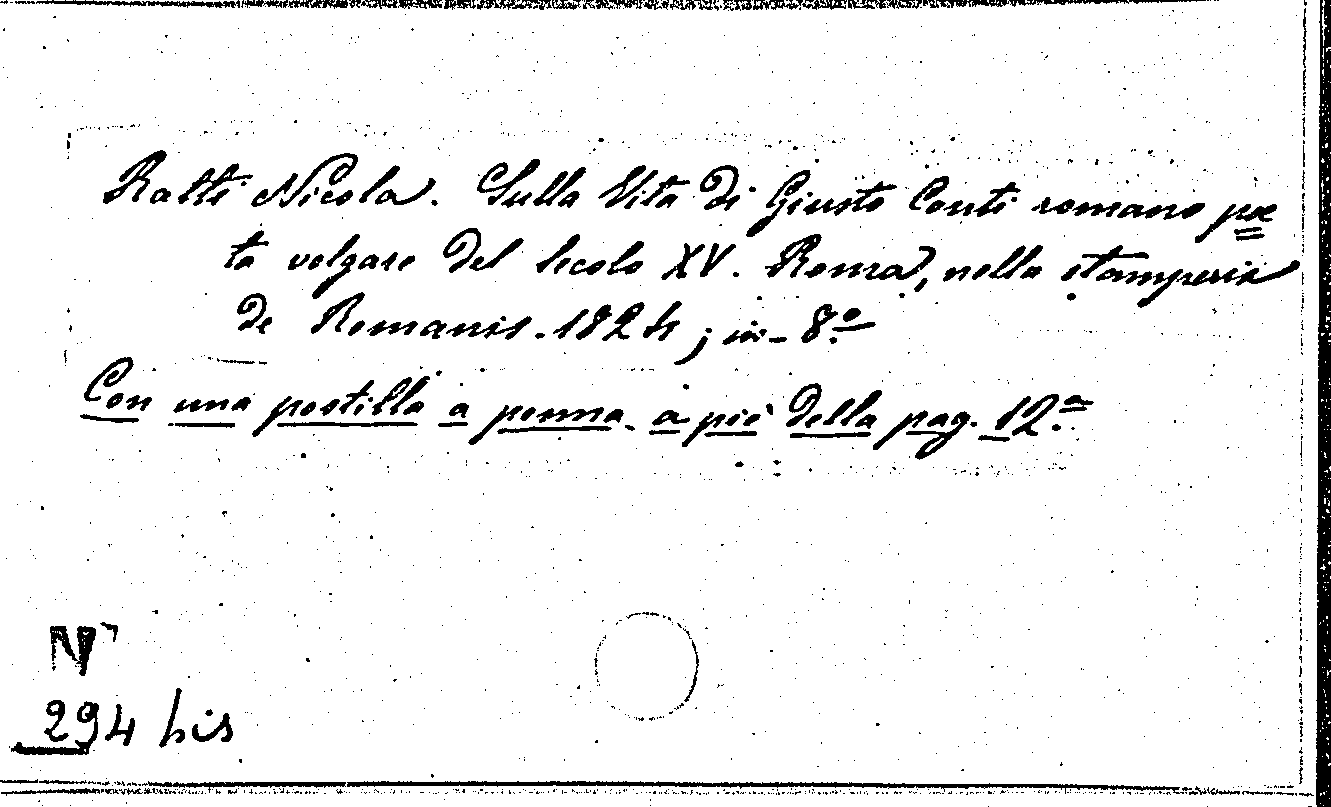 Ratti Nicola. Sulla Vita di Giusto Conti romano poe=
ta volgare del secolo XV. Roma, nella stamperia
de Romanis. 1824; in-8.º
Con una postilla a penna a piè della pag. 12.ª
N
294 bis